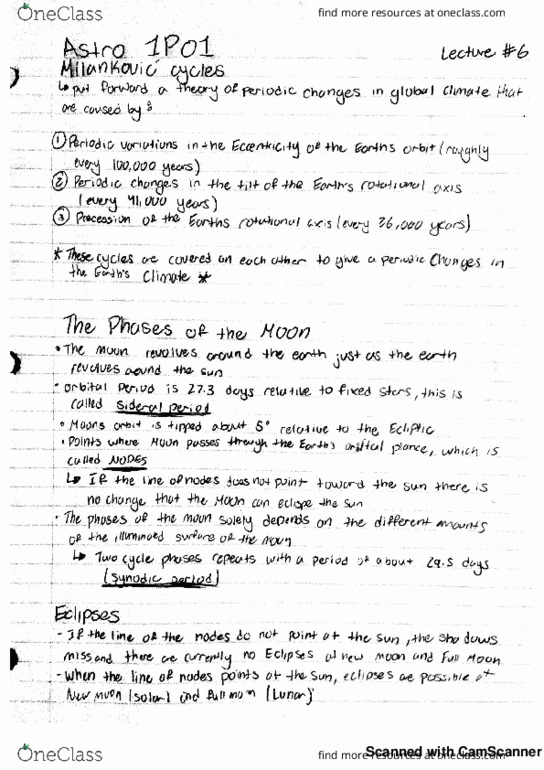 OneClass
find more resources at oneclass.com
Astro 1P01
Lecture #6
Milanković cycles
↳ put forward a theory of periodic changes in global climate that
are caused by :
① Periodic variations in the Eccenticity of the Earths orbit (roughly
every 100,000 years)
② Periodic changes in the tilt of the Earth's rotational axis
(every 41,000 years)
③ Precession of the Earths rotational axis (every 26,000 years)
* These cycles are covered on each other to give a periodic Changes in
the Earth's Climate *
The Phases of the Moon
• The moon revolves around the earth just as the earth
revolves around the sun
• Orbital period is 27.3 days relative to fixed stars, this is
called sideral period
• Moons orbit is tipped about 5° relative to the Ecliptic
• Points where Moon passes through the Earth's orbital plance, which is
called NODES
↳ If the line of nodes does not point toward the sun there is
no change that the Moon can eclipse the sun
• The phases of the moon solely depends on the different amounts
of the illuminated surface of the moon
↳ Two cycle phases repeats with a period of about 29.5 days
(synodic period)
Eclipses
- If the line of the nodes do not point at the sun, the shadows
miss and there are currently no Eclipses at new moon and Full Moon
- When the line of nodes points at the Sun, eclipses are possible at
New moon (solar) and full moon (Lunar)
OneClass
find more resources at oneclass.com
Scanned with CamScanner